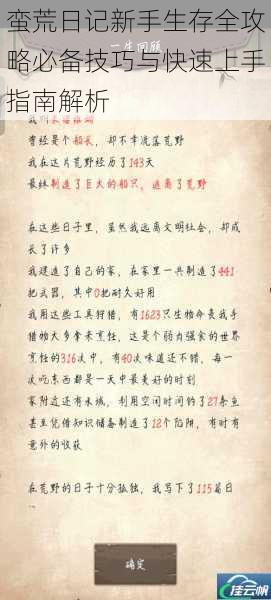 蛮荒日记新手生存全攻
略必备技巧与快速上手
指南解析
一生回顾
曾经是个船长，却不幸流落荒野
我在这片荒野经历了143天
最终制造了巨大的船只，逃离了荒野
在这些日子里，虽然我远离文明社会，却成
长了许多
我建造了自己的家，在家里一共制造了441
把武器，其中0把耐久好用
我用这些工具狩猎，有1623只生物命丧我手
猎物大多拿来烹饪，这是个弱肉强食的世界
烹饪的316次中，有40次味道还不错，每一
次吃东西都是一天中最美好的时刻
家附近还有水域，利用空闲时间钓了27条鱼
甚至凭借知识储备制造了12个陷阱，有时有
意外的收获
在荒野的日子十分孤独，我写下了115篇日
确定
佳云帆